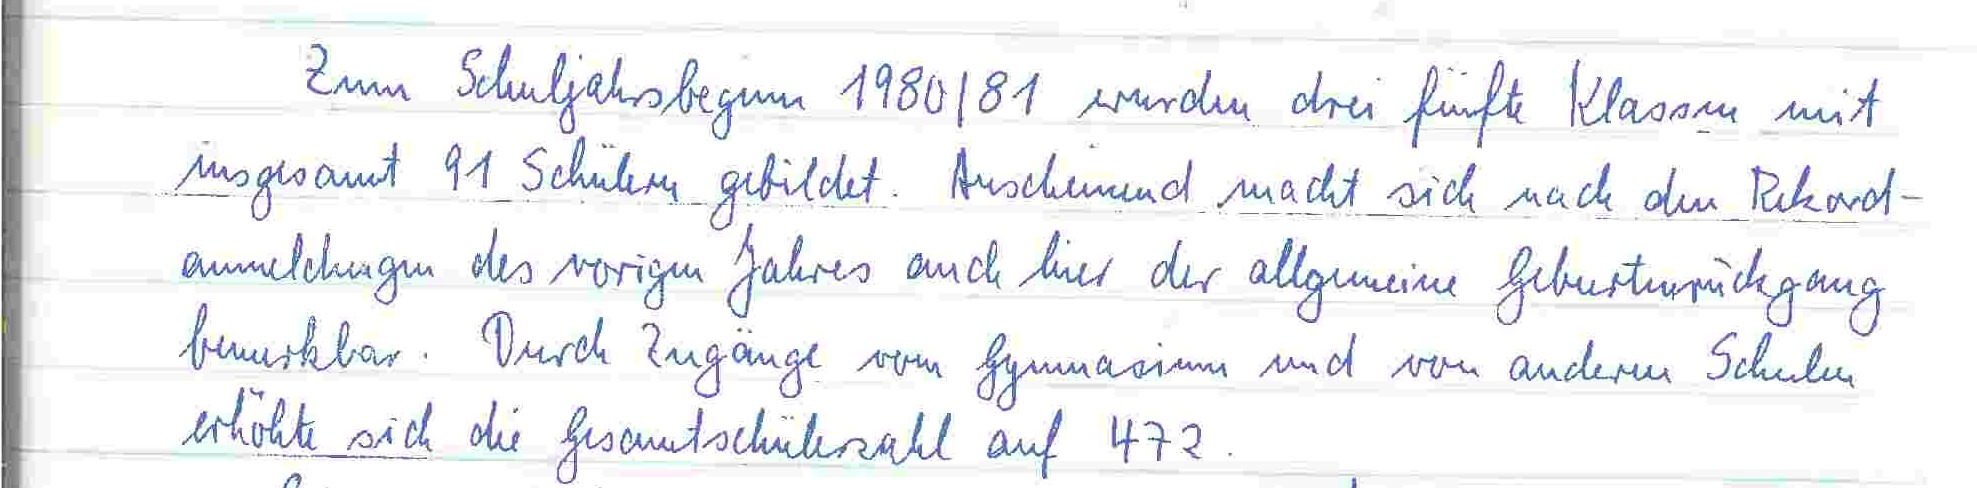 Zum Schuljahrsbeginn 1980/81 wurden drei fünfte Klassen mit
insgesamt 91 Schülern gebildet. Anscheinend macht sich nach den Rekord-
anmeldungen des vorigen Jahres auch hier der allgemeine Geburtenrückgang
bemerkbar. Durch Zugänge vom Gymnasium und von anderen Schulen
erhöhte sich die Gesamtschülerzahl auf 472.